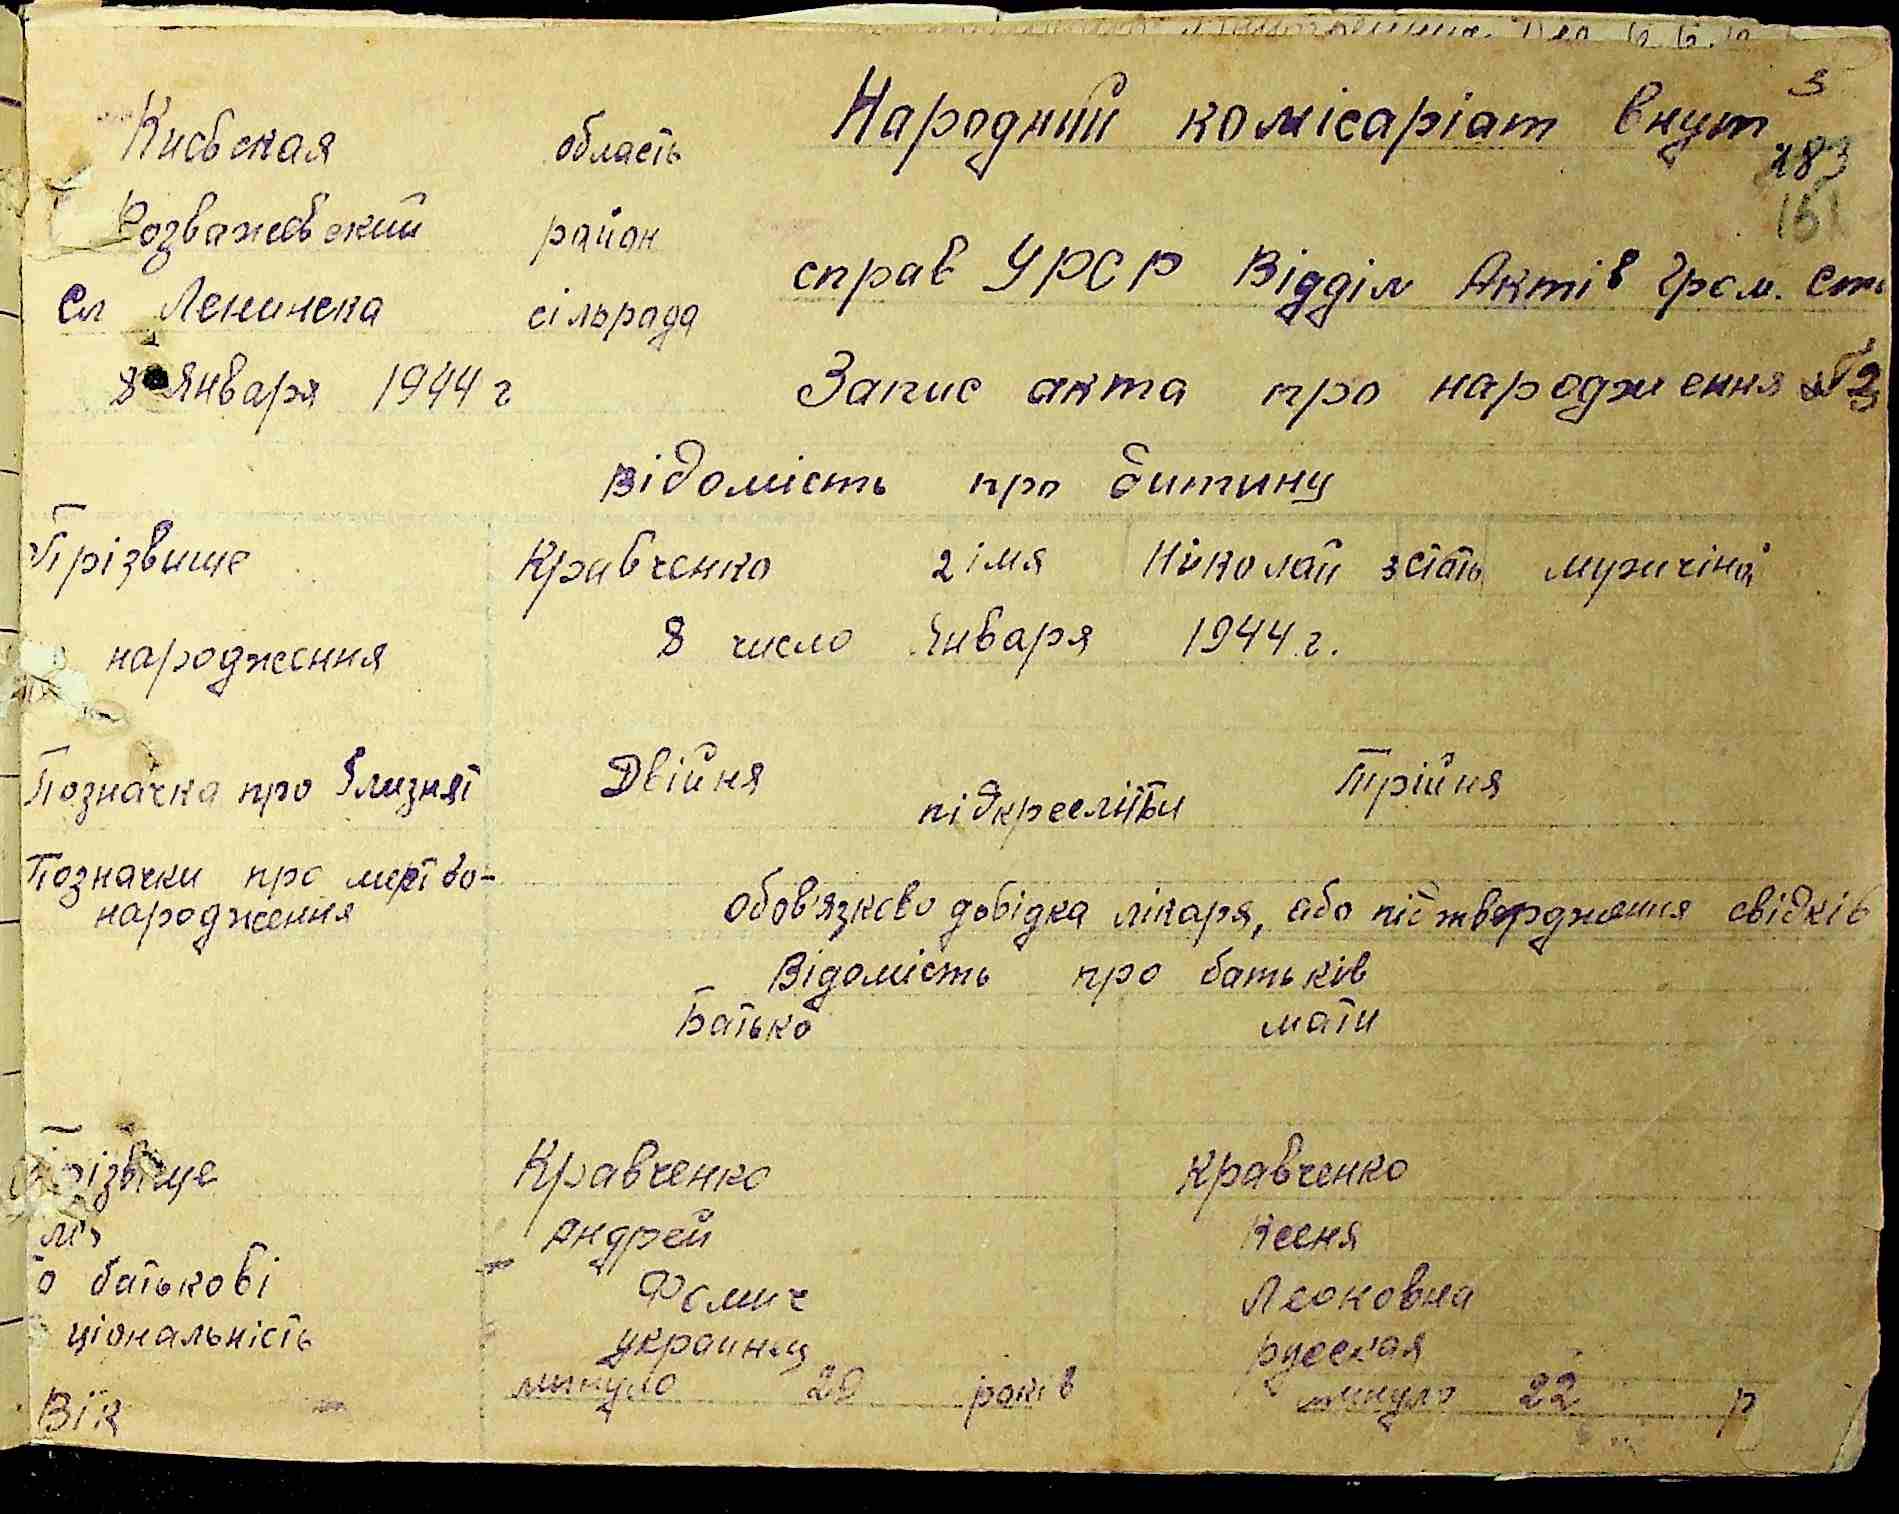 3
Киевская область Народний комісаріат внут
183
151
Розважевский район
справ УРСР Відділ Актів Гром. ст
Ел Ленинска сільрада
8 Января 1944 г Запис акта про народження № 2
Відомість про дитину
Прізвище Кравченко 2 імя Николай 3 стать мужчіна
народження 8 число Января 1944 г.
Позначка про близнят Двійня підкреслити Трійня
Позначки про мертво-
народження обов'язково довідка лікаря, або підтвердження свідків
Відомість про батьків
Батько мати
прізвище Кравченко Кравченко
Андрей Ксеня
о батькові Фомич Леоковна
ціональність украинец русская
Вік минуло 20 років минуло 22 р